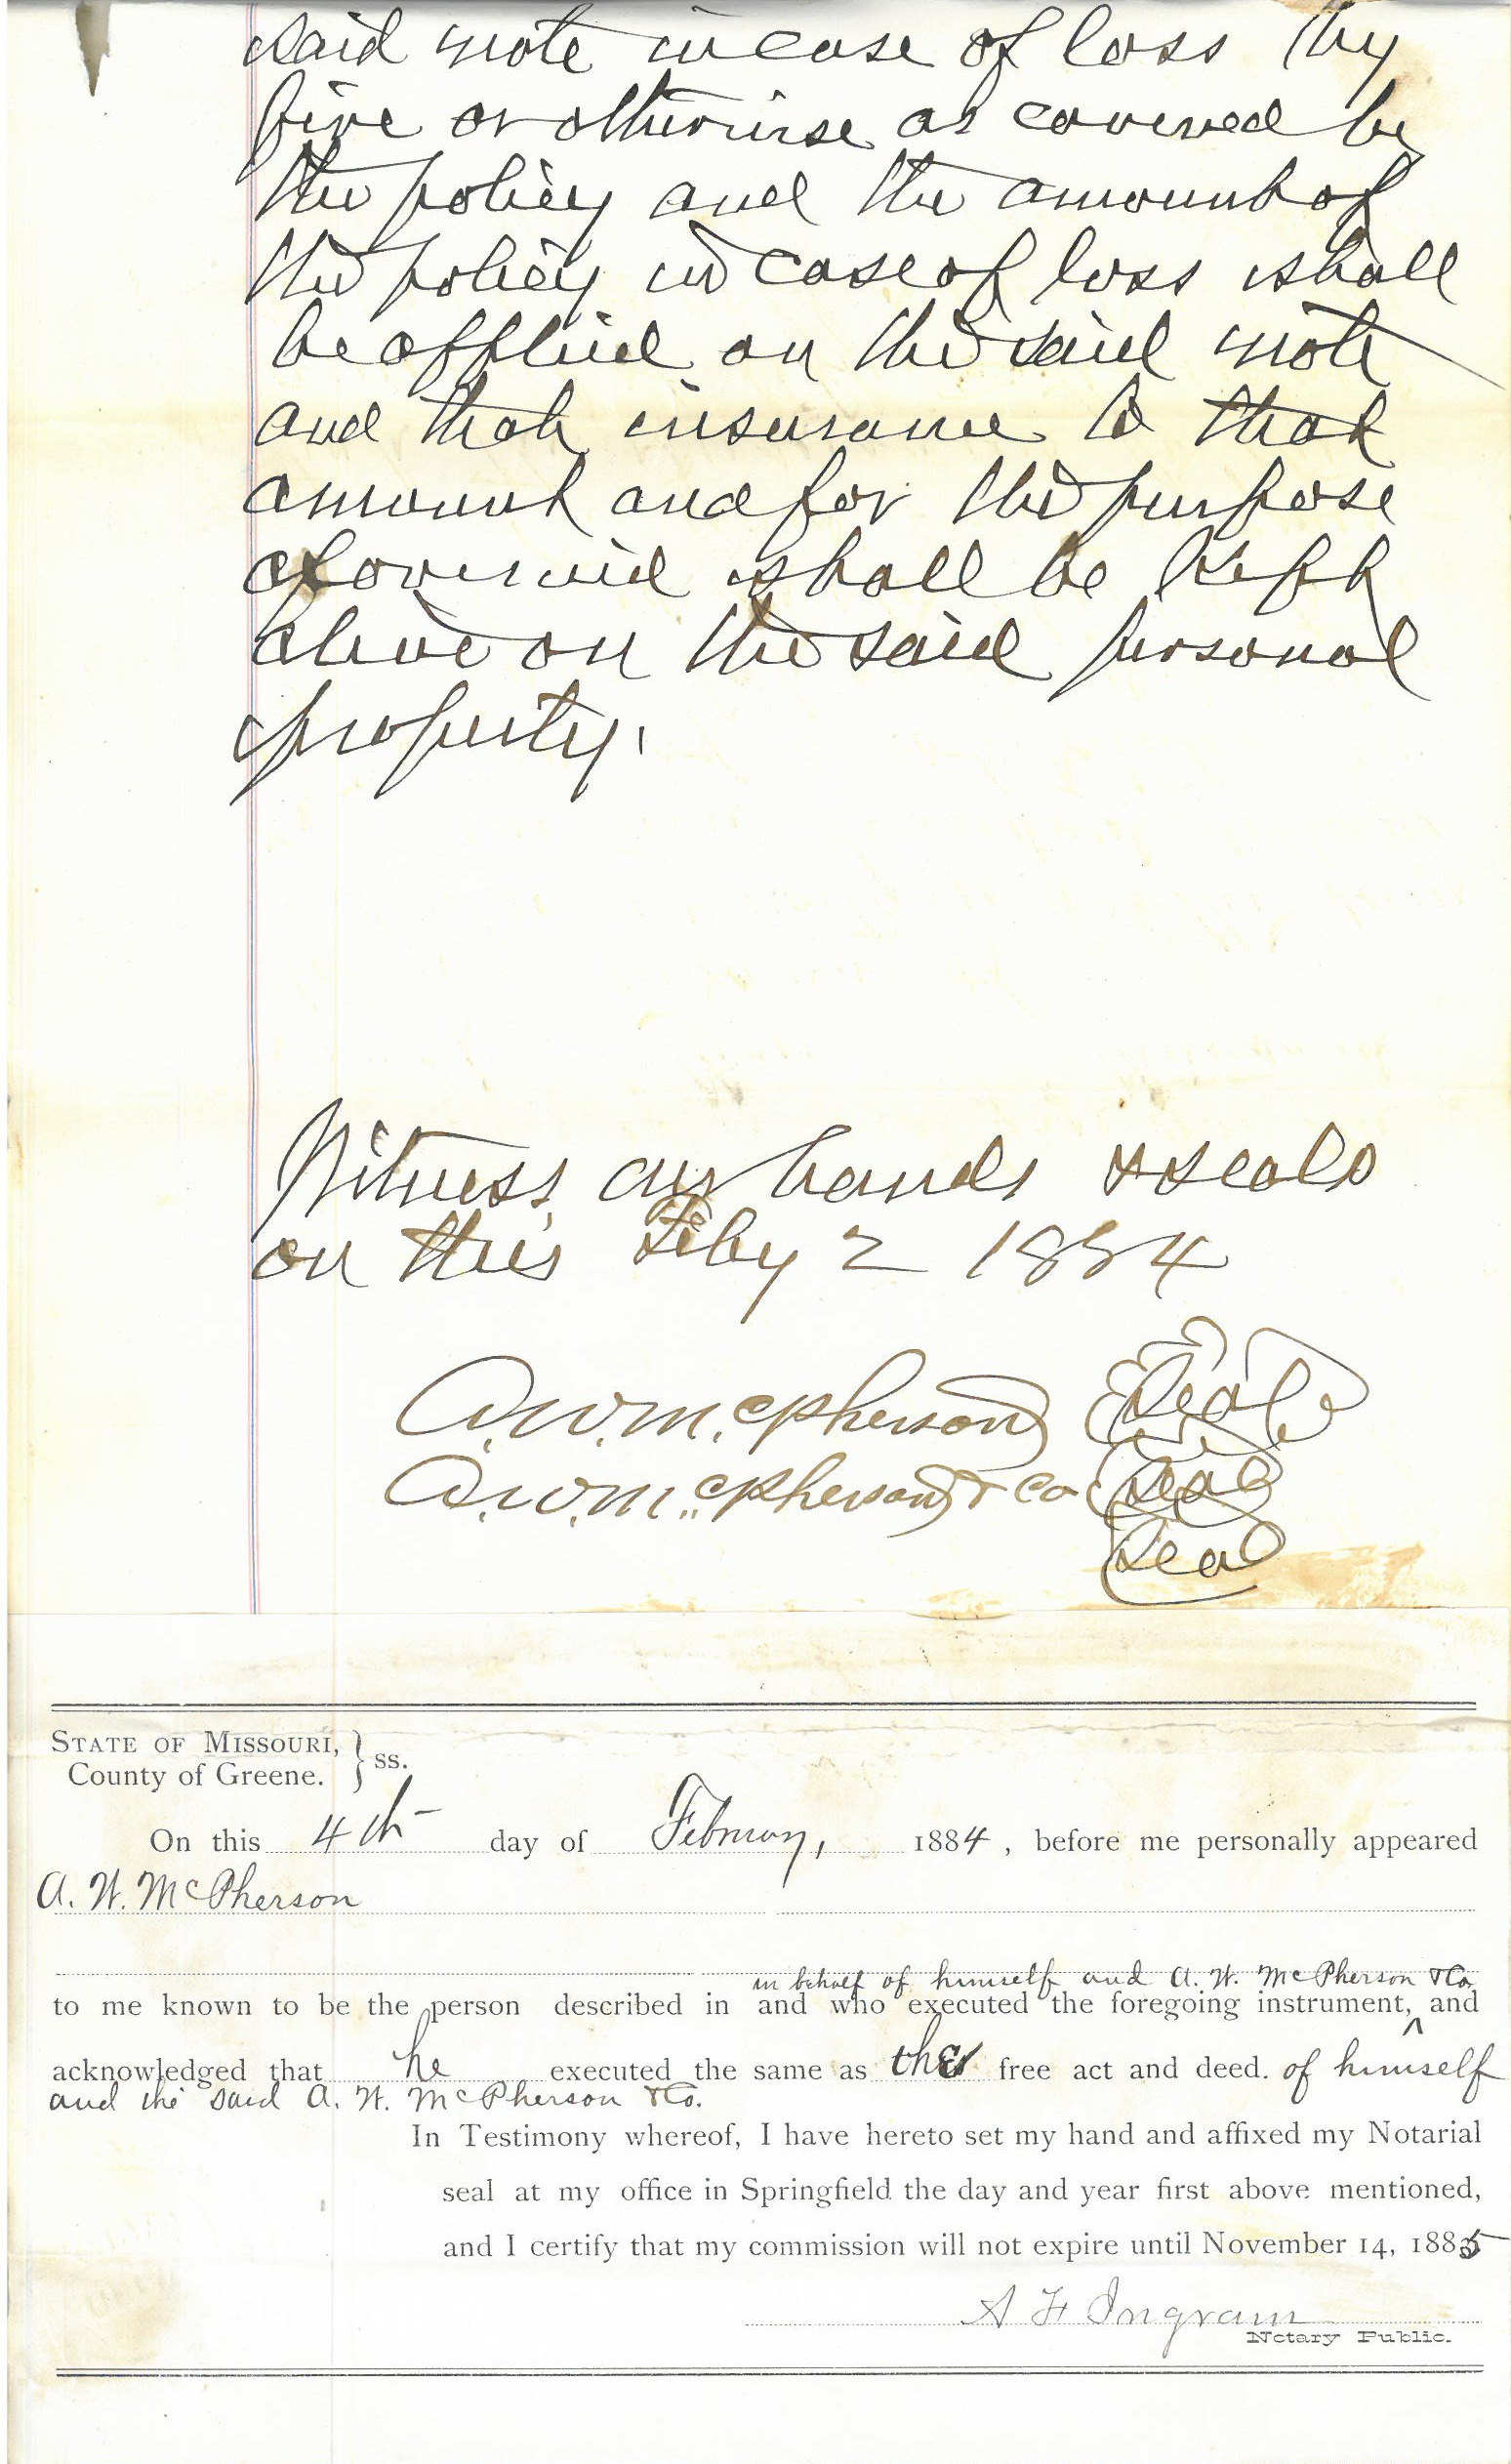 said note in case of loss by
fire or otherwise as covered by
the policy and the amount of
the policy in case of loss shall
be applied on the said note
and that insurance to that
amount and for the purpose
aforesaid shall be kept
alive on the said personal
property.
Witness our hands & seals
on this Feby 2 1884
A. W. McPherson Seal
A. W. McPherson & Co Seal
Seal
STATE OF MISSOURI, } ss.
County of Greene.
On this 4th day of February, 1884, before me personally appeared
A. W. McPherson
in behalf of himself and A. W. McPherson & Co.
to me known to be the person described in and who executed the foregoing instrument, ^ and
acknowledged that he executed the same as the free act and deed. of himself
and the said A. W. McPherson & Co.
In Testimony whereof, I have hereto set my hand and affixed my Notarial
seal at my office in Springfield the day and year first above mentioned,
and I certify that my commission will not expire until November 14, 1885
A F Ingram
Notary Public.